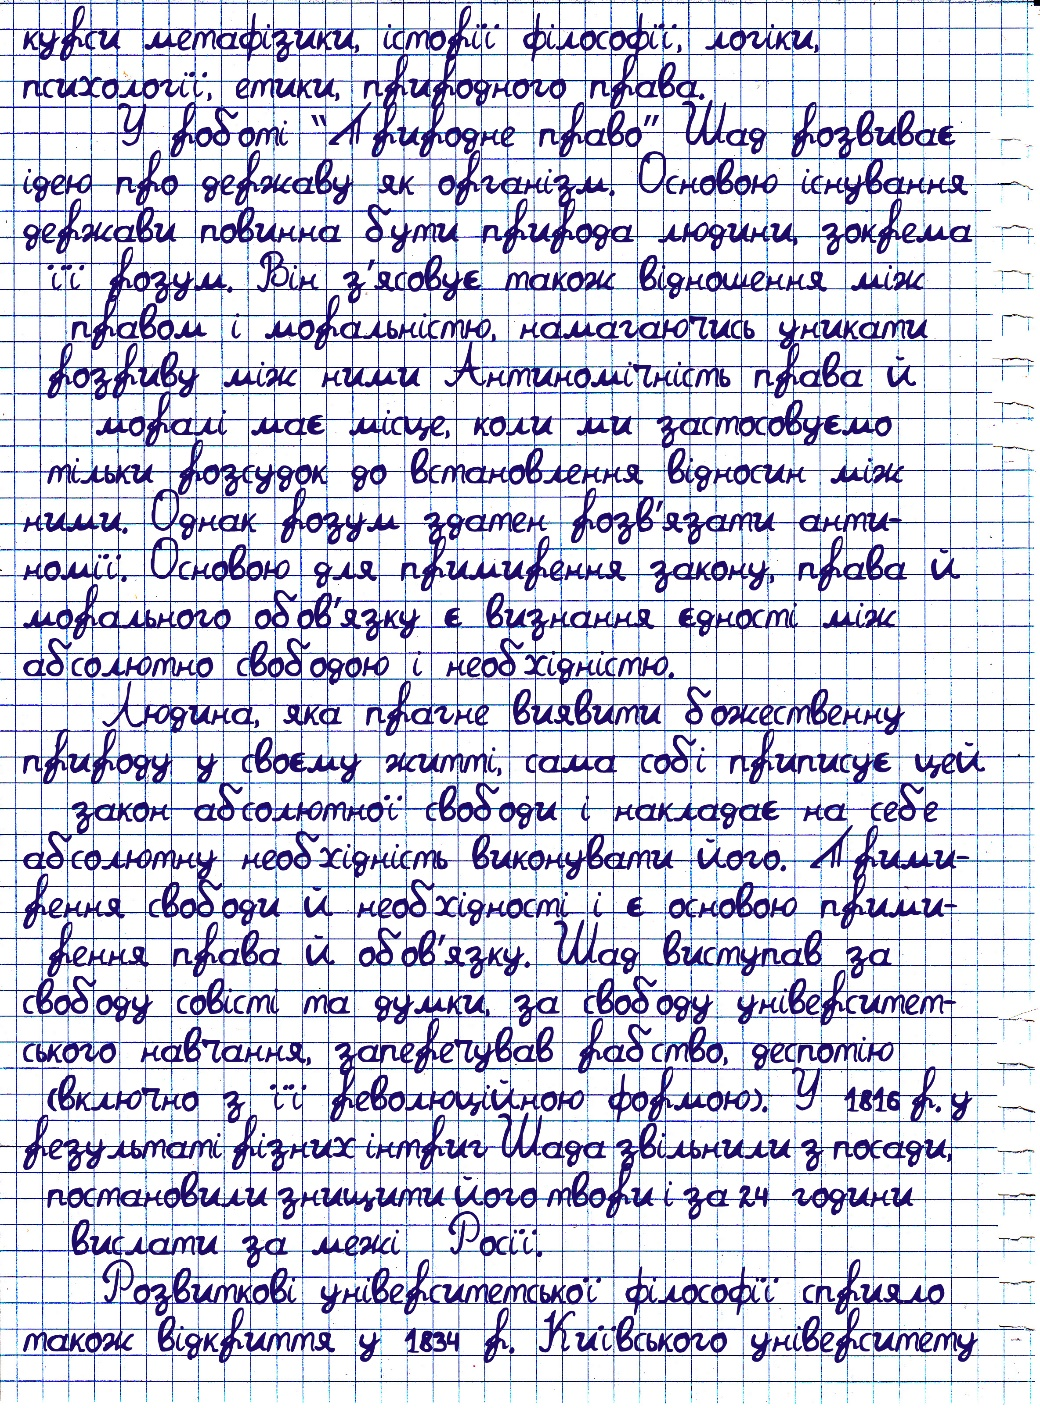 курси метафізики, історії філософії, логіки,
психології, етики, природного права.
У роботі "Природне право" Шад розвиває
ідею про державу як організм. Основою існування
держави повинна бути природа людини, зокрема
її розум. Він з'ясовує також відношення між
правом і моральністю, намагаючись уникати
розриву між ними Антиномічність права й
моралі має місце, коли ми застосовуємо
тільки розсудок до встановлення відносин між
ними. Однак розум здатен розв'язати анти-
номії. Основою для примирення закону, права й
морального обов'язку є визнання єдності між
абсолютно свободою і необхідністю.
Людина, яка прагне виявити божественну
природу у своєму житті, сама собі приписує цей
закон абсолютної свободи і накладає на себе
абсолютну необхідність виконувати його. Прими-
рення свободи й необхідності і є основою прими-
рення права й обов'язку. Шад виступав за
свободу совісті та думки, за свободу університет-
ського навчання, заперечував рабство, деспотію
(включно з її революційною формою). У 1816 р. у
результаті різних інтриг Шада звільнили з посади,
постановили знищити його твори і за 24 години
вислати за межі Росії.
Розвиткові університетської філософії сприяло
також відкриття у 1834 р. Київського університету